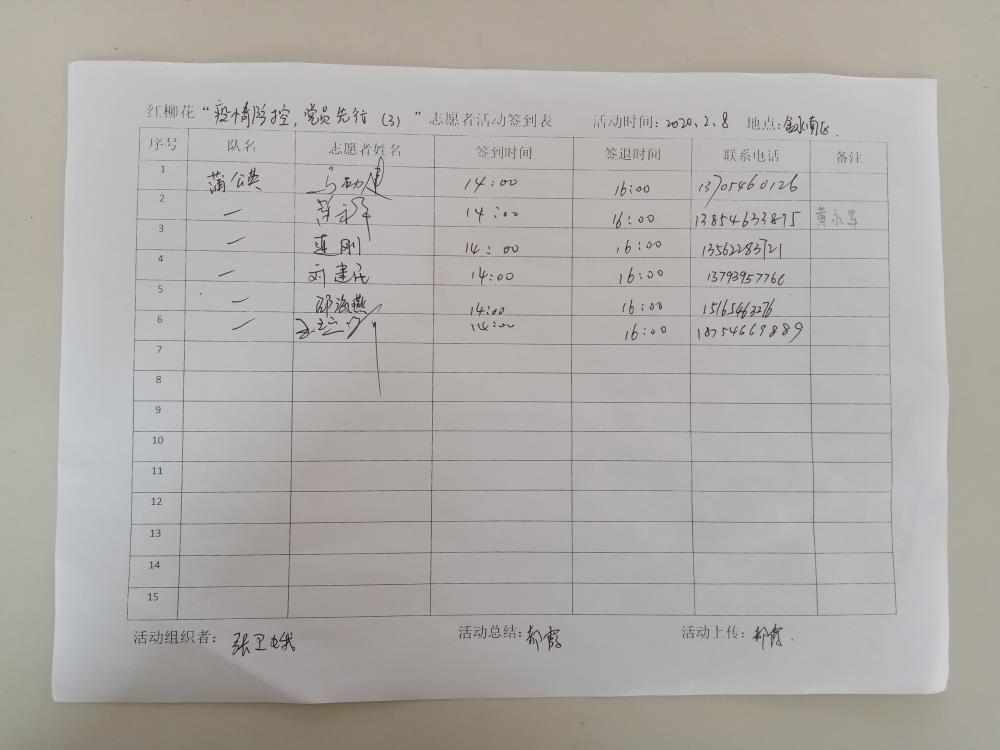 红柳花“疫情防控,党员先行(3)”志愿者活动签到表 活动时间:2020.2.8 地点:南区.
序号 队名 志愿者姓名 签到时间 签退时间 联系电话 备注
1 蒲公英 14:00 16:00 13705460126
2 一 14:00 16:00 13854633875 黄永军
3 一 连刚 14:00 16:00 13562283721
4 一 刘建民 14:00 16:00 13793957766
5 一 邵海燕 14:00 16:00 15165463276
6 一 14:00 16:00 18754669889
7
8
9
10
11
12
13
14
15
活动组织者: 张卫 活动总结:郝霞 活动上传:郝霞.